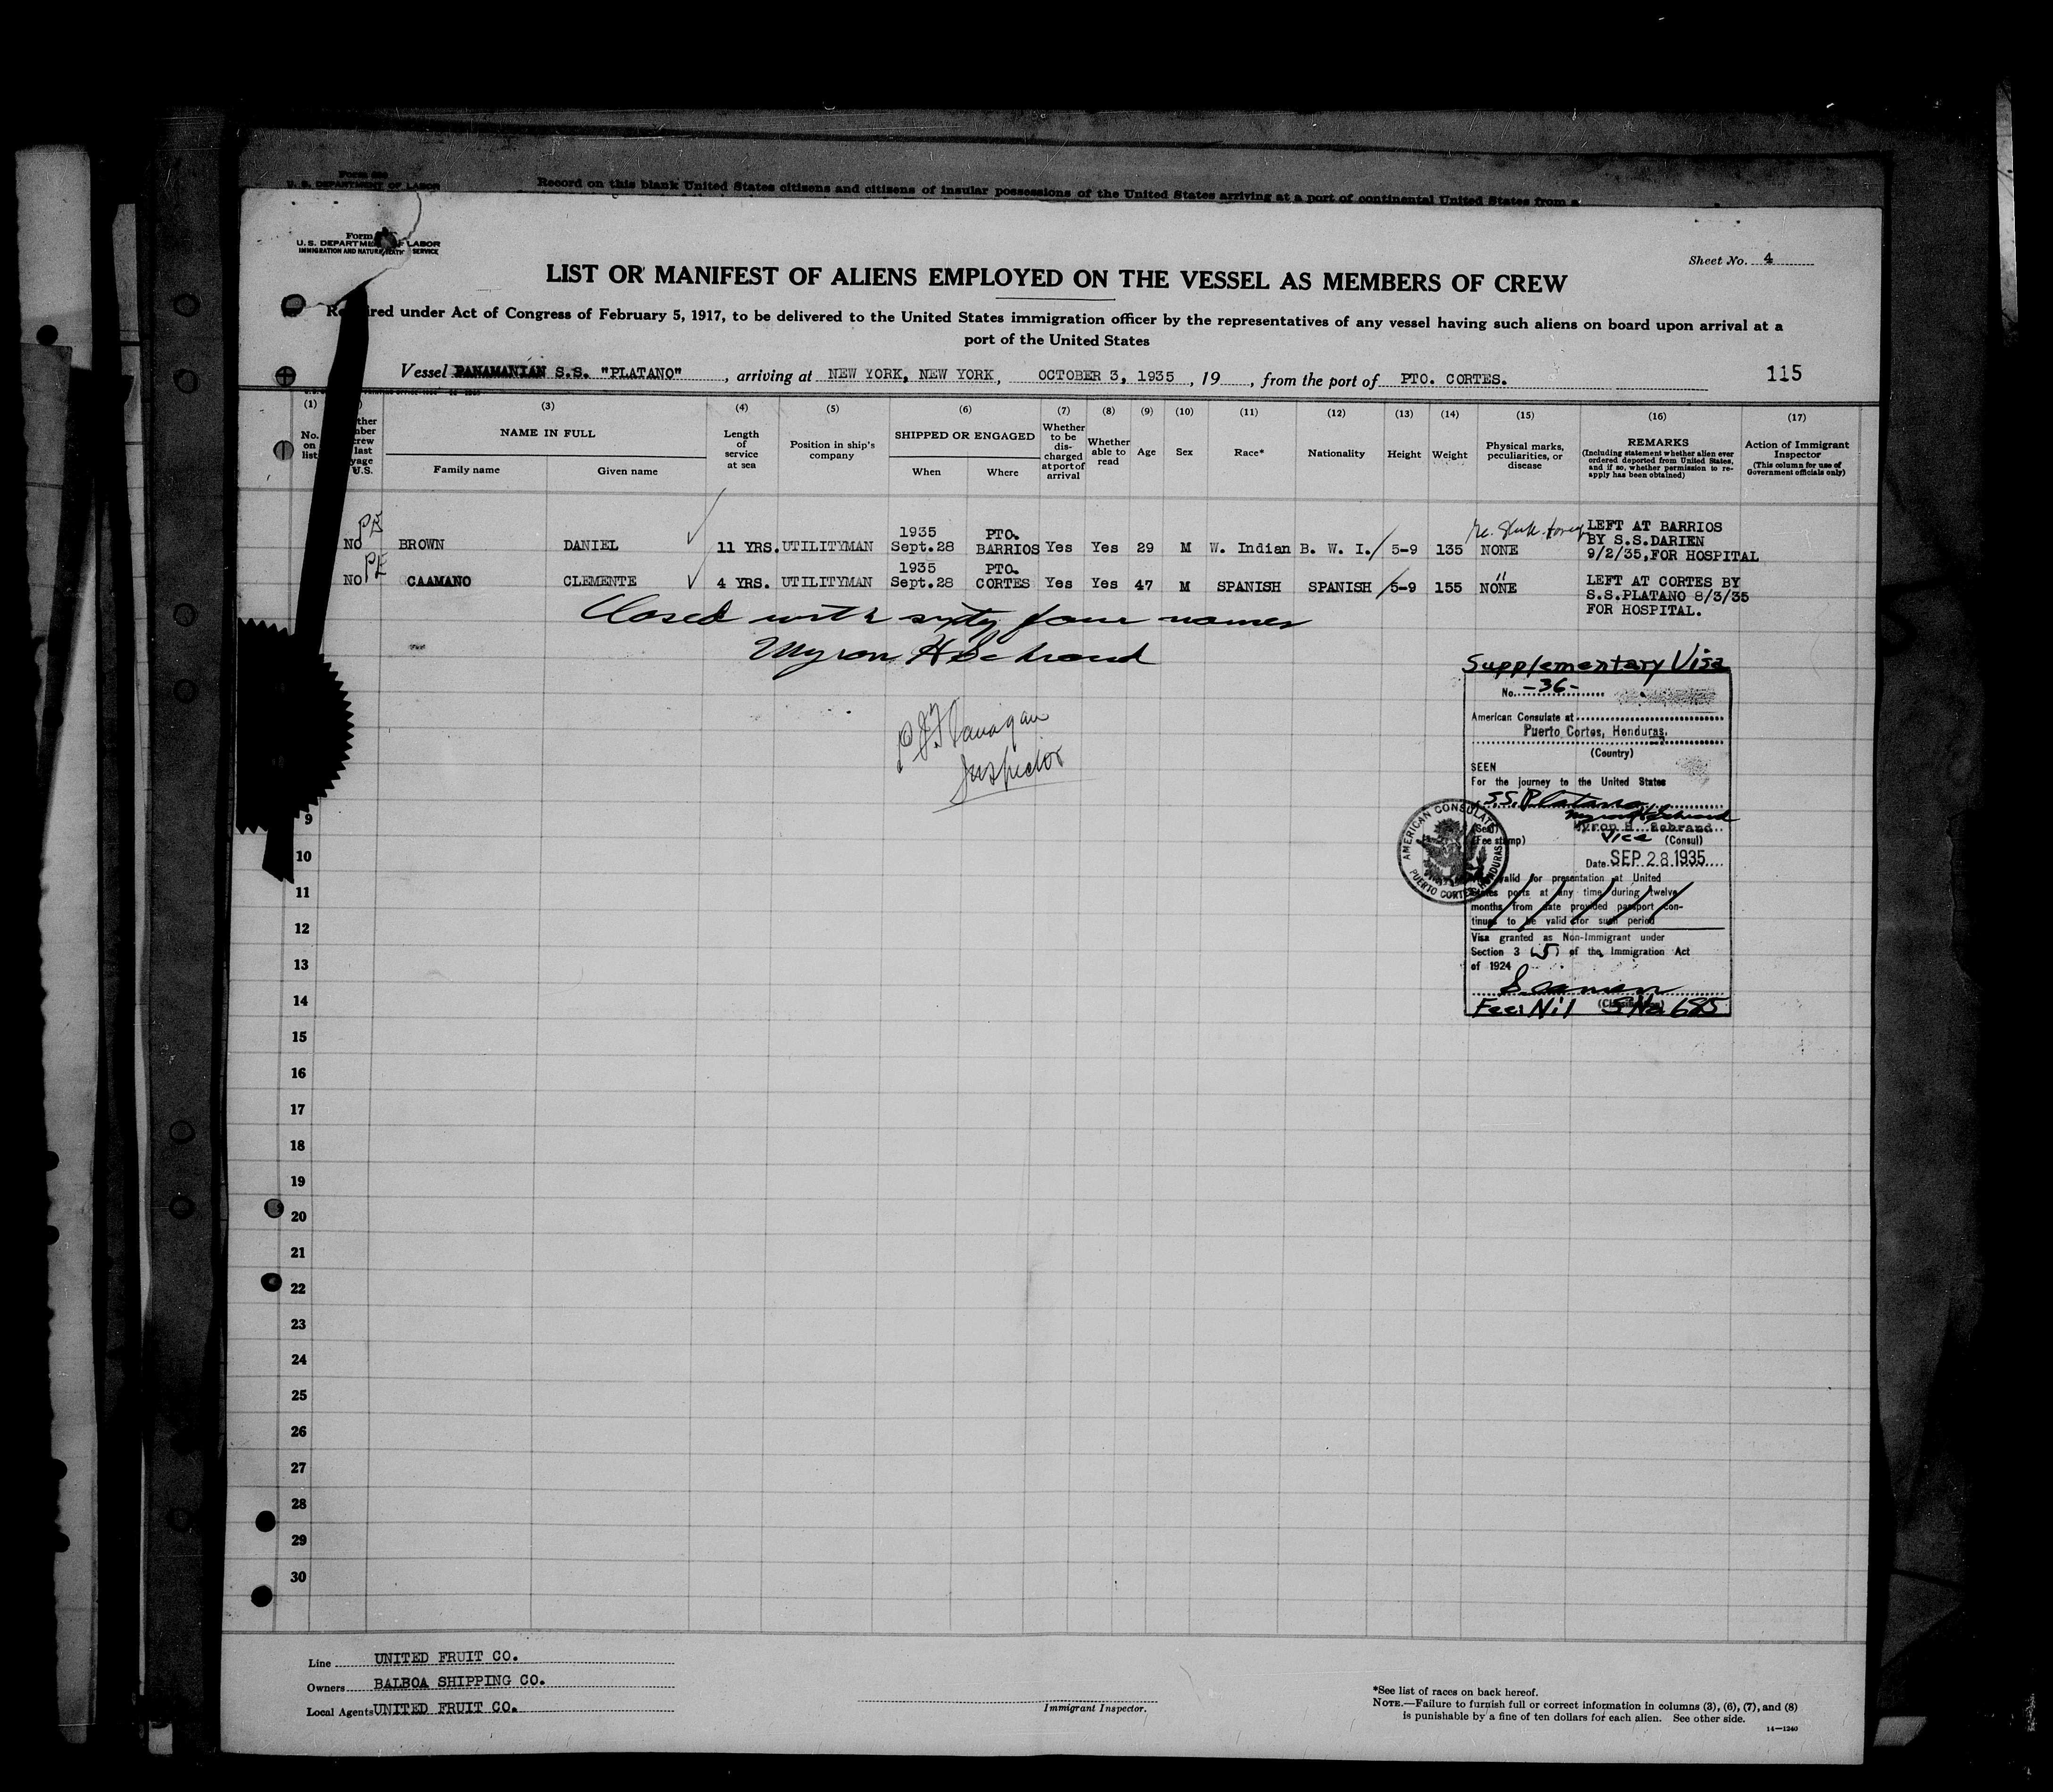 Form
U. S. DEPARTMENT OF LABOR
Record on this blank United States citizens and citizens of insular possessions of the United States arriving at a port of continental United States from a
Form
U. S. DEPARTMENT OF LABOR
IMMIGRATION AND SERVICE
Sheet No. 4
LIST OR MANIFEST OF ALIENS EMPLOYED ON THE VESSEL AS MEMBERS OF CREW
Required under Act of Congress of February 5, 1917, to be delivered to the United States immigration officer by the representatives of any vessel having such aliens on board upon arrival at a
port of the United States
Vessel PANAMANIAN S.S. "PLATANO", arriving at NEW YORK, NEW YORK, OCTOBER 3, 1935, 19, from the port of PTO. CORTES.
115
(1) (3) (4) (5) (6) (7) (8) (9) (10) (11) (12) (13) (14) (15) (16) (17)
No. on list
NAME IN FULL
Family name
Given name
Length of service at sea
Position in ship's company
SHIPPED OR ENGAGED
When
Where
Whether to be discharged at port of arrival
Whether able to read
Age
Sex
Race*
Nationality
Height
Weight
Physical marks, peculiarities, or disease
REMARKS
(Including statement whether alien ever ordered deported from United States, and if so, whether permission to reapply has been obtained)
Action of Immigrant Inspector
(This column for use of Government officials only)
PE
NO BROWN DANIEL 11 YRS. UTILITYMAN 1935 Sept.28 PTO. BARRIOS Yes Yes 29 M W. Indian B. W. I. 5-9 135 NONE LEFT AT BARRIOS BY S.S.DARIEN 9/2/35,FOR HOSPITAL
PE
NO CAAMANO CLEMENTE 4 YRS. UTILITYMAN 1935 Sept.28 PTO. CORTES Yes Yes 47 M SPANISH SPANISH 5-9 155 NONE LEFT AT CORTES BY S.S.PLATANO 8/3/35 FOR HOSPITAL.
Closed with sixty four names
Myron H Schraud
Flanagan
Inspector
Supplementary Visa
No. -36-
American Consulate at
Puerto Cortes, Honduras.
(Country)
SEEN
For the journey to the United States
S.S. Platano
(Seal)
(Fee stamp)
Vice (Consul)
Date SEP 28 1935
valid for presentation at United
States ports at any time during twelve
months from date provided passport con-
tinues to be valid for such period
Visa granted as Non-Immigrant under
Section 3 (5) of the Immigration Act
of 1924
Seaman
(Classification)
Fee: Nil SNo 685
AMERICAN CONSULATE
PUERTO CORTES, HONDURAS
9
10
11
12
13
14
15
16
17
18
19
20
21
22
23
24
25
26
27
28
29
30
Line UNITED FRUIT CO.
Owners BALBOA SHIPPING CO.
Local Agents UNITED FRUIT CO.
Immigrant Inspector.
*See list of races on back hereof.
NOTE.—Failure to furnish full or correct information in columns (3), (6), (7), and (8)
is punishable by a fine of ten dollars for each alien. See other side.
14—1240